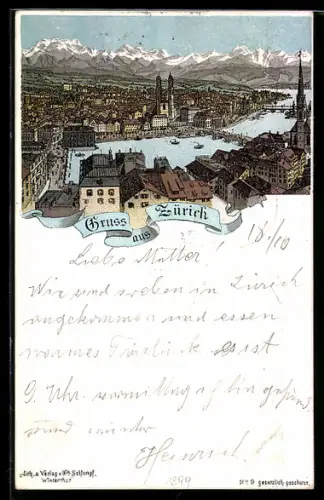 Gruss
aus
Zürich
18/10
Liebe Mutter!
Wir sind soeben in Zürich
angekommen und essen
warmes Frühstück es ist
9. Uhr. vormittag ich bin gesund
und munter
Heinrich
1899
Lith. & Verlag v.
Winterthur
Nº 9 gesetzlich geschützt.